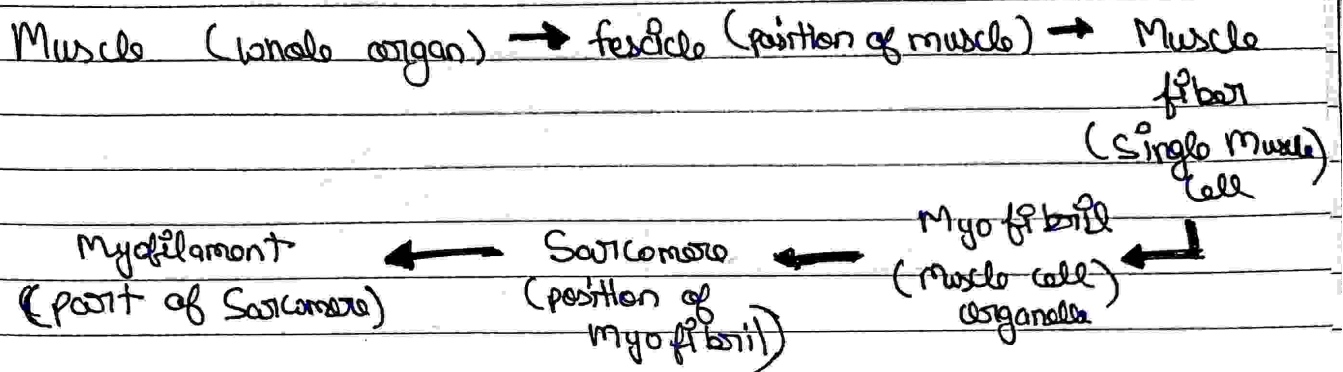 Muscle (whole organ) → fescicle (position of muscle) → Muscle
fiber
(Single Muscle)
Cell
Myofibril
(Muscle cell)
organelle
Sarcomere
(position of
Myofibril)
Myofilament
(part of Sarcomere)